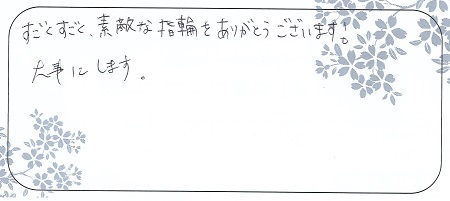 すごくすごく、素敵な指輪をありがとうございます!
大事にします。